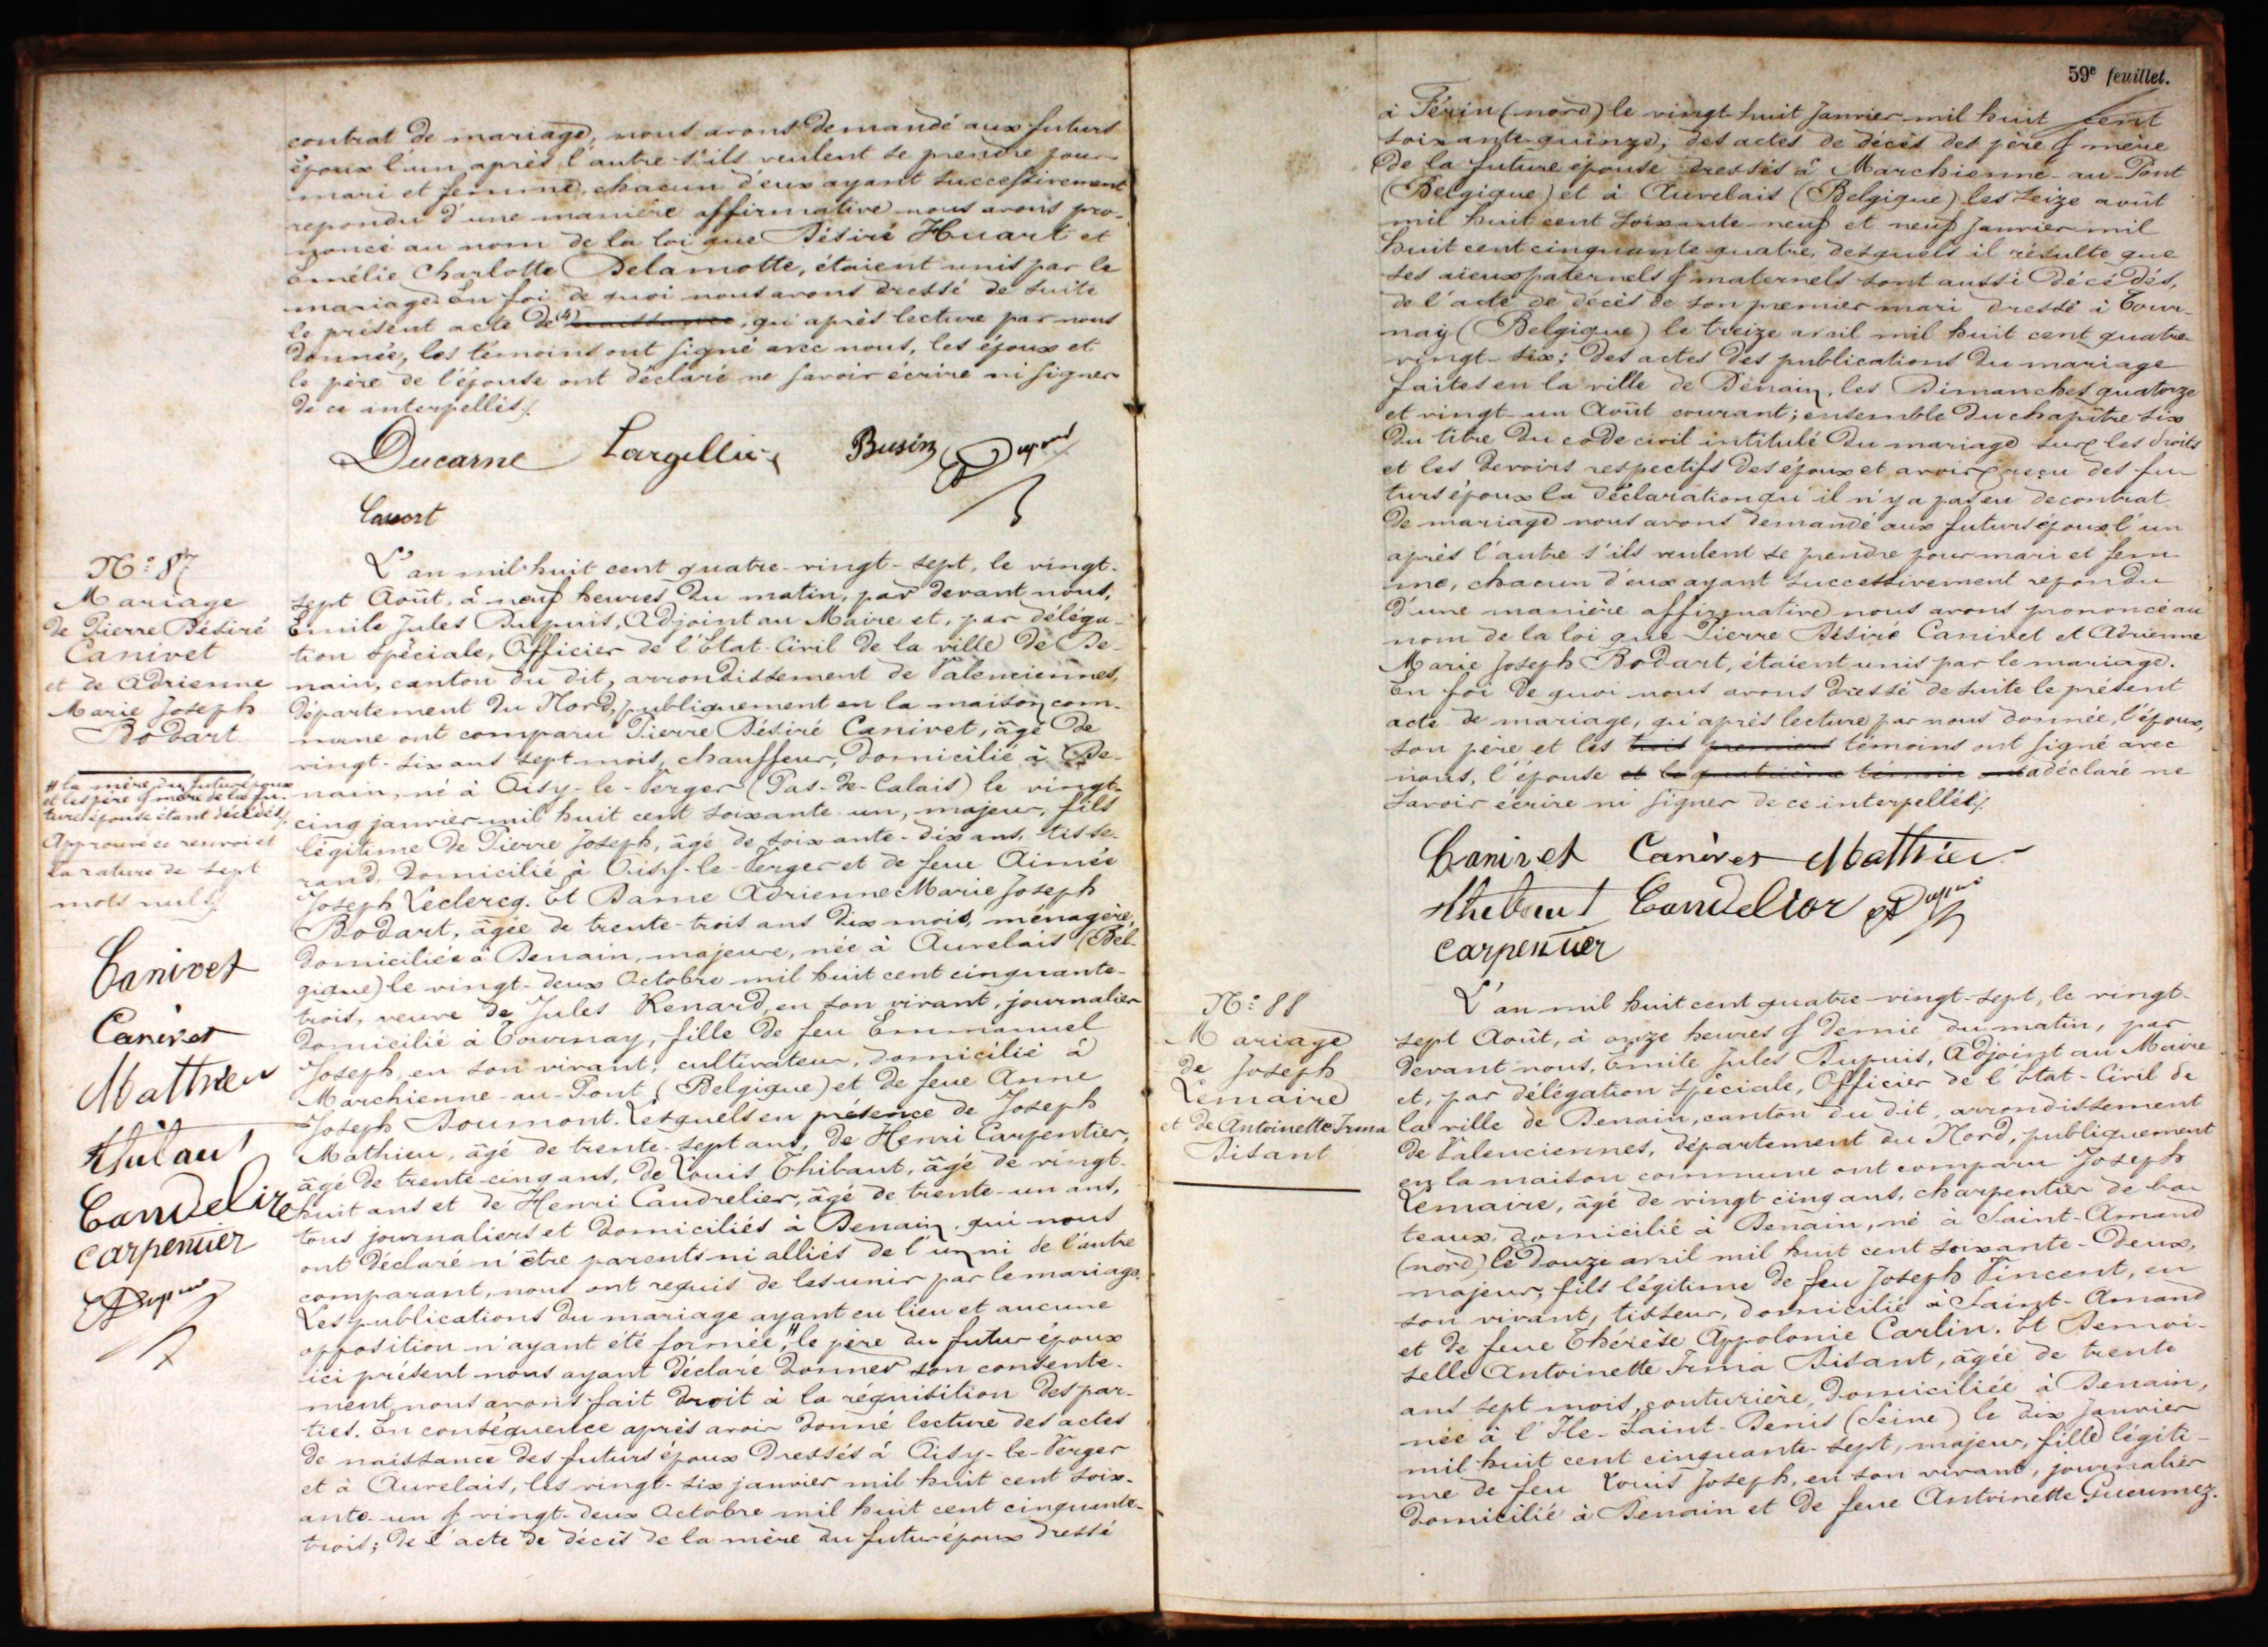 contrat de mariage, nous avons demandé aux futurs
époux l'un après l'autre s'ils veulent se prendre pour
mari et femme, chacun d'eux ayant successivement
repondu d'une manière affirmative nous avons pro-
noncé au nom de la loi que Désiré Huart et
Emélie Charlotte Delamotte, étaient unis par le
mariage. En foi de quoi nous avons dressé de suite
le présent acte de naissance, qui après lecture par nous
donnée, les témoins ont signé avec nous, les époux et
le père de l'épouse ont déclaré ne savoir écrire ni signer
de ce interpellés./.
Ducarne Largillière Busin Dupuis
N° 87
Mariage
de Pierre Désiré
Canivet
et de Adrienne
Marie Joseph
Bodart
# la mère du futur époux
et les père & mère de la fu-
ture épouse étant décédés./.
Approuvé ce renvoi et
la rature de sept
mots nuls./.
Canivet
Caniver
Matthieu
Thibaut
Caudelier
Carpentier
EDupuis
L'an mil huit cent quatre-vingt-sept, le vingt-
sept Août, à neuf heures du matin, par devant nous,
Emile Jules Dupuis, Adjoint au Maire et, par déléga-
tion spéciale, Officier de l'Etat-Civil de la ville de De-
nain, canton du dit, arrondissement de Valenciennes,
département du Nord, publiquement en la maison com-
mune ont comparu Pierre Désiré Canivet, âgé de
vingt-six ans sept mois, chauffeur, domicilié à De-
nain, né à Oisy-le-Verger (Pas-de-Calais) le vingt-
cinq janvier mil huit cent soixante-un, majeur, fils
légitime de Pierre Joseph, âgé de soixante-dix ans, tisse-
rand, domicilié à Oisy-le-Verger et de feue Aimée
Joseph Leclercq. Et Dame Adrienne Marie Joseph
Bodart, âgée de trente-trois ans dix mois, ménagère,
domiciliée à Denain, majeure, née à Auvelais (Bel-
gique) le vingt-deux Octobre mil huit cent cinquante-
trois, veuve de Jules Renard, en son vivant, journalier
domicilié à Tournay, fille de feu Emmanuel
Joseph, en son vivant, cultivateur, domicilié à
Marchienne-au-Pont (Belgique) et de feue Anne
Joseph Doumont. Lesquels en présence de Joseph
Mathieu, âgé de trente-sept ans, de Henri Carpentier,
âgé de trente-cinq ans, de Louis Thibaut, âgé de vingt-
huit ans et de Henri Caudrelier, âgé de trente-un ans,
tous journaliers et domiciliés à Denain, qui nous
ont déclaré n'être parents ni alliés de l'un ni de l'autre
comparant, nous ont requis de les unir par le mariage.
Les publications du mariage ayant eu lieu et aucune
opposition n'ayant été formée, # le père du futur époux
ici présent nous ayant déclaré donner son consente-
ment, nous avons fait droit à la réquisition des par-
ties. En conséquence après avoir donné lecture des actes
de naissance des futurs époux dressés à Oisy-le-Verger
et à Auvelais, les vingt-six janvier mil huit cent soix-
ante-un & vingt-deux Octobre mil huit cent cinquante-
trois; de l'acte de décès de la mère du futur époux dressé
59e feuillet.
à Férin (nord) le vingt-huit Janvier mil huit cent
soixante-quinze, des actes de décès des père & mère
de la future épouse dressés à Marchienne-au-Pont
(Belgique) et à Auvelais (Belgique) les seize août
mil huit cent soixante-neuf et neuf Janvier mil
huit cent cinquante-quatre, desquels il résulte que
ses aieux paternels & maternels sont aussi décédés,
de l'acte de décès de son premier mari dressé à Tour-
nay (Belgique) le treize avril mil huit cent quatre-
vingt-six; des actes des publications du mariage
faites en la ville de Denain, les Dimanches quatorze
et vingt-un Août courant; ensemble du chapitre six
du titre du code civil intitulé du mariage sur les droits
et les devoirs respectifs des époux et avoir reçu des fu-
turs époux la déclaration qu'il n'y a pas eu de contrat
de mariage nous avons demandé aux futurs époux l'un
après l'autre s'ils veulent se prendre pour mari et fem-
me, chacun d'eux ayant successivement repondu
d'une manière affirmative nous avons prononcé au
nom de la loi que Pierre Désiré Canivet et Adrienne
Marie Joseph Bodart, étaient unis par le mariage.
En foi de quoi nous avons dressé de suite le présent
acte de mariage, qui après lecture par nous donnée, l'époux,
son père et les trois premiers témoins ont signé avec
nous, l'épouse et le quatrième témoin ont a déclaré ne
savoir écrire ni signer de ce interpellés./.
Canivet Caniver Matthieu
Thibaut Caudelier EDupuis
Carpentier
N° 88
Mariage
de Joseph
Lemaire
et de Antoinette Irma
Disant
L'an mil huit cent quatre-vingt-sept, le vingt-
sept Août, à onze heures & demie du matin, par
devant nous, Emile Jules Dupuis, Adjoint au Maire
et, par délégation spéciale, Officier de l'Etat-Civil de
la ville de Denain, canton du dit, arrondissement
de Valenciennes, département du Nord, publiquement
en la maison commune ont comparu Joseph
Lemaire, âgé de vingt-cinq ans, charpentier de ba-
teaux, domicilié à Denain, né à Saint-Amand
(nord) le douze avril mil huit cent soixante-deux,
majeur, fils légitime de feu Joseph Vincent, en
son vivant, tisseur, domicilié à Saint-Amand
et de feue Thérèse Appolonie Carlin. Et Demoi-
selle Antoinette Irma Disant, âgée de trente
ans sept mois, couturière, domiciliée à Denain,
née à l'Ile-Saint-Denis (Seine) le dix Janvier
mil huit cent cinquante-sept, majeur, fille légiti-
me de feu Louis Joseph, en son vivant, journalier
domicilié à Denain et de feue Antoinette Gueumez.